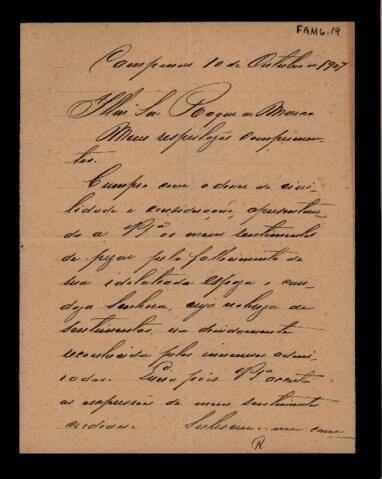 FAMG.19
Campinas 10 de Outubro de 1907
Illmo Snr Roque de Marco
Meus respeitosos cumprimen-
tos.
Cumpro com o dever de civi-
lidade e consideração, apresentan-
do a Vª Sª os meus sentimentos
de pezar pelo fallecimento de
sua idolatrada esposa e
Senhora, cuja nobreza de
sentimentos, era devidamente
reconhecida pelos immensos admi-
radores. pois Vª Sª acceite
as expressões de meus sentimentos
R